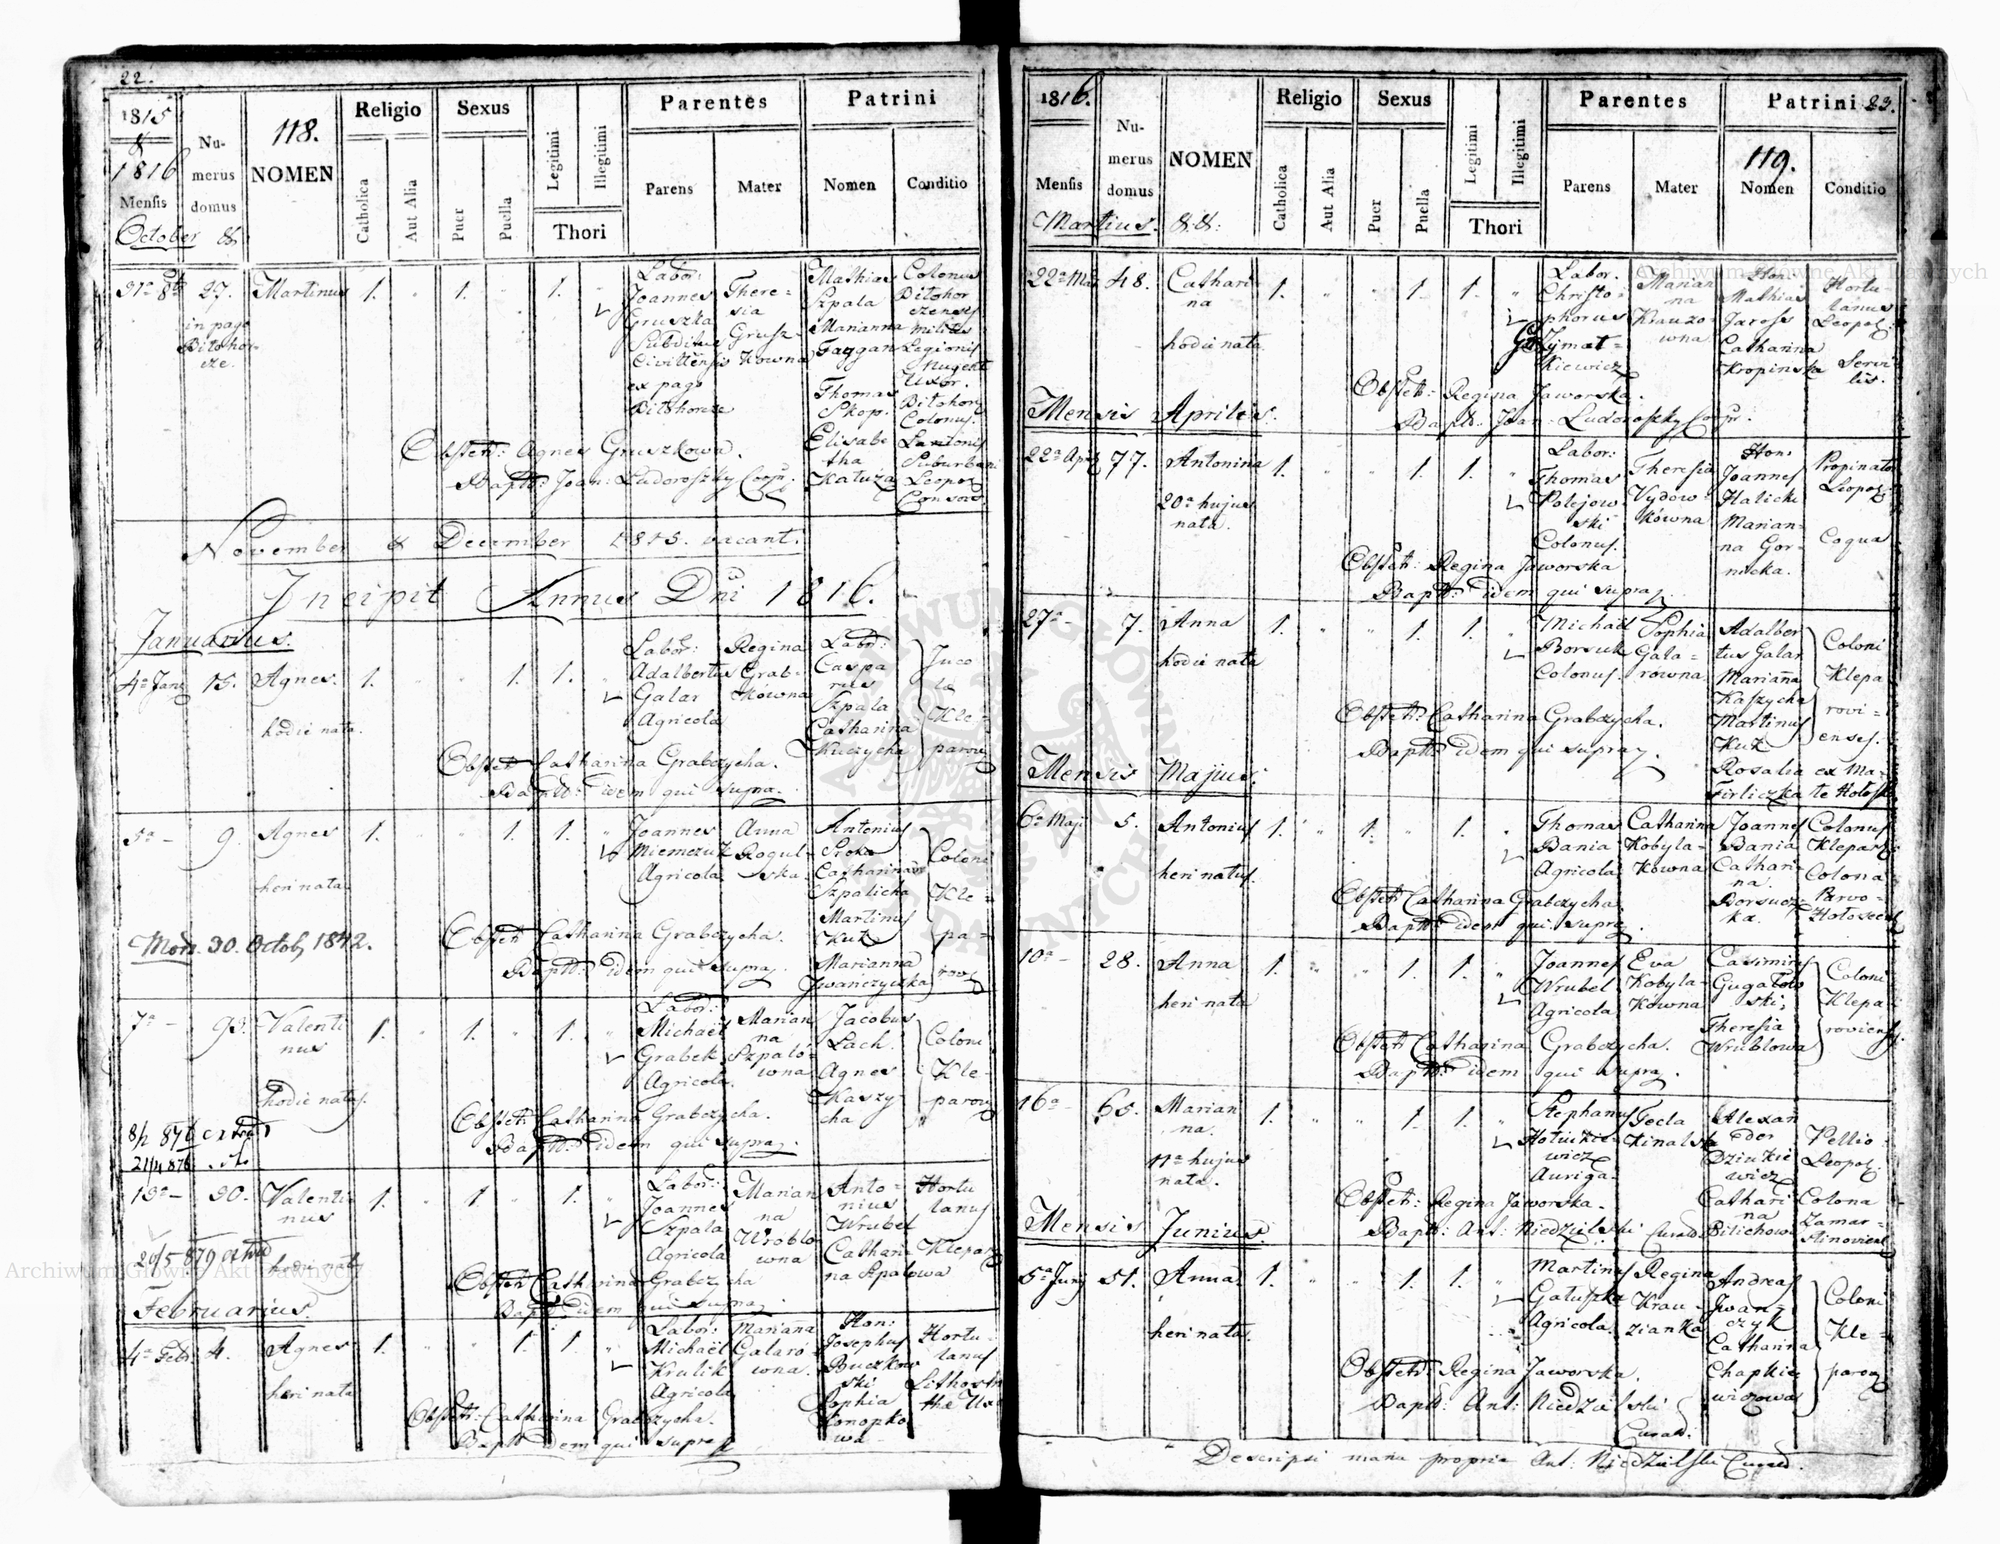 22.
1815
&
1816
Mensis
October &.
Numerus
domus
118.
NOMEN
Religio
Catholica
Aut Alia
Sexus
Puer
Puella
Legitimi
Illegitimi
Thori
Parentes
Parens
Mater
Patrini
Nomen
Conditio
31a 8b
27.
in pago
Bilohor-
cze.
Martinus
1.
1.
1.
Labor:
Joannes
Gruszka
Subditus
Civittensis
ex pago
Bilohorcze
There-
sia
Grusz-
kowna
Mathias
Szpala
Marianna
Thomas
Skop.
Elisabe
tha
Kałuża
Colonus
Bilohor
czenses
Militis
Legionis
Nugent
Uxor.
Bilohor
Colonus.
Suburbani
Leopol
Consors
Obstetr: Agnes Gruszkowa.
Bapt: Joan: Ludoroszky Coop:
November & December 1815. vacant.
Incipit Annus Dni 1816.
Januarius.
4a Janr
15.
Agnes.
hodie nata.
1.
1.
1.
Labor:
Adalbertus
Galar
Agricola
Regina
Grab-
kowna
Labor:
Caspa
rus
Szpala
Catharina
Kuczycha
Inco
la
Kle-
parov
Obstetr Catharina Grabczycha.
Bapt: idem qui supra.
5a -
9.
Agnes
heri nata
1.
1.
1.
Joannes
Niemczuk
Agricola
Anna
Rogul-
ska
Antonius
Sroka
Catharina
Szpalicka
Martinus
Kuk
Marianna
Iwanczyszka
Coloni
Kle-
pa-
rov
Mort. 30. Octob 1842.
Obstetr Catharina Grabczycha.
Bapt: idem qui supra.
7a -
93.
Valenti
nus
hodie natus.
1.
1.
1.
Labor:
Michael
Grabek
Agricola.
Marian
na
Szpaló-
wna
Jacobus
Lach.
Agnes
Kaszy
cha
Coloni
Kle-
parov
8/2 876 extrad
21/4 876
Obstetr Catharina Grabczycha.
Bapt: idem qui supra.
13a -
30.
Valenti-
nus
hodie natus
1.
1.
1.
Labor:
Joannes
Szpala
Agricola
Marian
na
Wroblo
wna
Anto-
nius
Wrubel
Cathari
na Szpalowa
Hortu
lanus
Klepar
29/5 879 extrad
Obstetr Catharina Grabczycha
Bapt idem qui supra.
Februarius.
4a Febr.
4.
Agnes
heri nata
1.
1.
1.
Labor:
Michael
Krulik
Agricola
Mariana
Galaró-
wna.
Hon:
Josephus
Buczkow
ski
Sophia
Konopko
wa
Hortu-
lanus
Obstetr: Catharina Grabczycha.
Bapt idem qui supra
1816.
Mensis
Martius.
Numerus
domus
NOMEN
&.&.
Religio
Catholica
Aut Alia
Sexus
Puer
Puella
Legitimi
Illegitimi
Thori
Parentes
Parens
Mater
Patrini 23.
119.
Nomen
Conditio
22a Mar
48.
Cathari-
na
hodie nata
1.
1.
1.
Labor.
Christo-
phorus
Szymat-
kiewicz
Marian
na
Krauzo-
wna
Hon:
Mathias
Jarosz
Catharina
Kropinska
Hortu
lanus
Leopol:
Servi
lis.
Obstetr: Regina Jaworska.
Bapt. Joan: Ludoroszky Coop:.
Mensis Aprilis.
22a Apr
77.
Antonina
20a hujus
nata.
1.
1.
1.
Labor:
Thomas
Polejow-
ski
Colonus.
Theresia
Vydow-
kówna
Hon:
Joannes
Halicki
Marian-
na Gor-
nicka.
Propinator
Leopol:
Coqua
Obstetr: Regina Jaworska
Bapt: idem qui supra.
27a -
7.
Anna
hodie nata
1.
1.
1.
Michael
Borsuk
Colonus.
Sophia
Gala-
rowna
Adalber
tus Galar
Mariana
Kaszycha
Martinus
Kuk
Rosalia
Firliczka
Coloni
Klepa
rovi-
enses.
ex Ma-
te Hołosk
Obstetr: Catharina Grabczycha.
Bapt: idem qui supra.
Mensis Majus.
6a Maji
5.
Antonius
heri natus.
1.
1.
1.
Thomas
Bania
Agricola
Catharina
Kobyla-
kówna
Joannes
Bania
Cathari-
na
Borsucz-
ka.
Colonus
Klepar
Colona
Parvo-
Hołoscens
Obstetr Catharina Grabczycha.
Bapt: idem qui supra.
10a -
28.
Anna
heri nata
1.
1.
1.
Joannes
Wrubel
Agricola
Eva
Kobyla-
kowna
Casimirus
Gugałow
ski;
Theresia
Wrublowa
Coloni
Klepa
roviens
Obstetr Catharina Grabczycha.
Bapt: idem qui supra.
16a -
65.
Marian
na.
11a hujus
nata.
1.
1.
1.
Stephanus
wicz
Auriga.
Tecla
Kinalska
Alexan
der
Dziukie
wicz
Cathari
na
Bilichowa
Pellio
Leopol:
Colona
Zamar-
stinoviens
Obstetr: Regina Jaworska.
Bapt: Ant: Niedzielski Curad
Mensis Junius.
5a Junj
51.
Anna.
heri nata.
1.
1.
1.
Martinus
Gałuszka
Agricola
Regina
Krau-
zianka
Andreas
Iwan-
czyk
Catharina
Chapkie
wiczowa
Coloni
Kle-
parov
Obstetr: Regina Jaworska.
Bapt: Ant: Niedzielski
Curad.
Descripsi manu propria Ant: Niedzielski Curad.
Archiwum Główne Akt Dawnych
Archiwum Główne Akt Dawnych